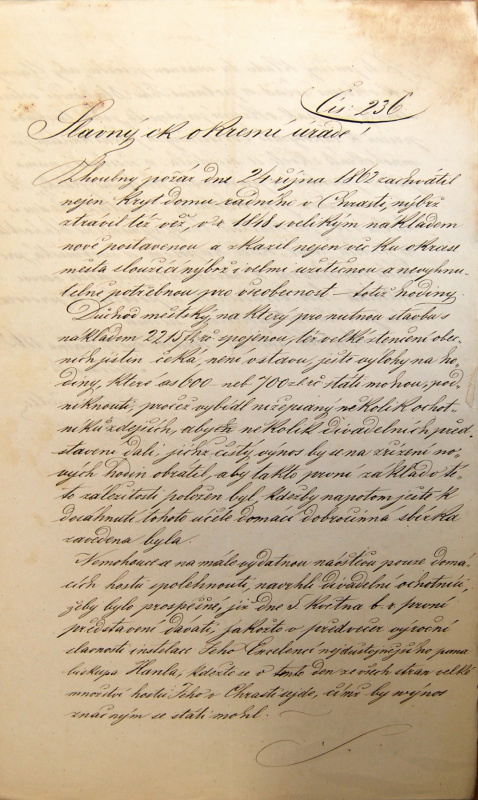 Čís: 236
Slavný ck okresní úřade!
Zhoubny požár dne 24 října 1862 zachvátil
nejen kryt domu radního v Chrasti, nýbrž
ztrávil též věž, v r 1848 s velikým nákladem
nově postavenou a zkazil nejen věc ku okrase
města sloužící nýbož i velmi užitečnou a nevyhnu-
telně potřebnou pro všeobecnost – totiž hodiny.
Důchod městský, na který pro nutnou stavbu s
nákladem 2215 zł rč spojenou, též velké ztenčení obec-
ních jistin čeká, není v stavu, ještě výlohy na ho-
diny, které as 600 neb 700 zł rč státi mohou, pod-
niknouti, pročež vybídl nížepsaný několik ochot-
níků zdejších, abyste několik divadelních před-
stavení dali, jichž čistý výnos by se na zřízení no-
vých hodin obrátil, aby takto první základ v té-
to záležitosti položen byl, kdežby napotom ještě k
docáhnutí tohoto účele domácí dobročinná sbírka
zavedena byla.
Nemohouce a na mále vydatnou návštěvu pouze domá-
cích hostů spolehnouti, navrhli divadelní ochotníci,
žeby bylo prospěšné, již dne 5 května b. r první
představení dávati, jakožto v předvečer výroční
slavnosti instalace Jeho Excelencí nejdůstojnějšího pana
biskupa Hanla, kdežto se v tento den ze všech stran velké
množství hostů Jeho v Chrasti sejde, čímž by výnos
značným se státi mohl.